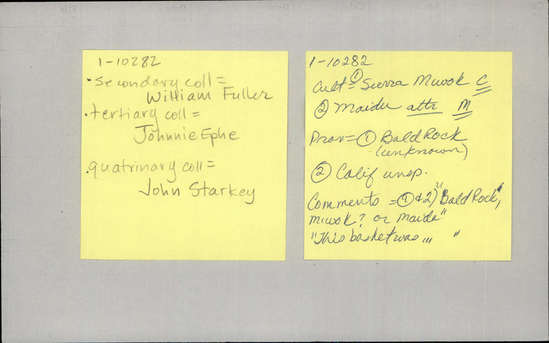 1-10282
• secondary coll =
William Fuller
• tertiary coll =
Johnnie Ephe
• quatrinary coll =
John Starkey
1-10282
Cult = ① Sierra Miwok C
② Maidu attr M
Prov = ① Bald Rock
(unknown)
② Calif unsp.
Comments = ① & 2) "Bald Rock,
Miwok? or Maidu"
"This basket was ... "